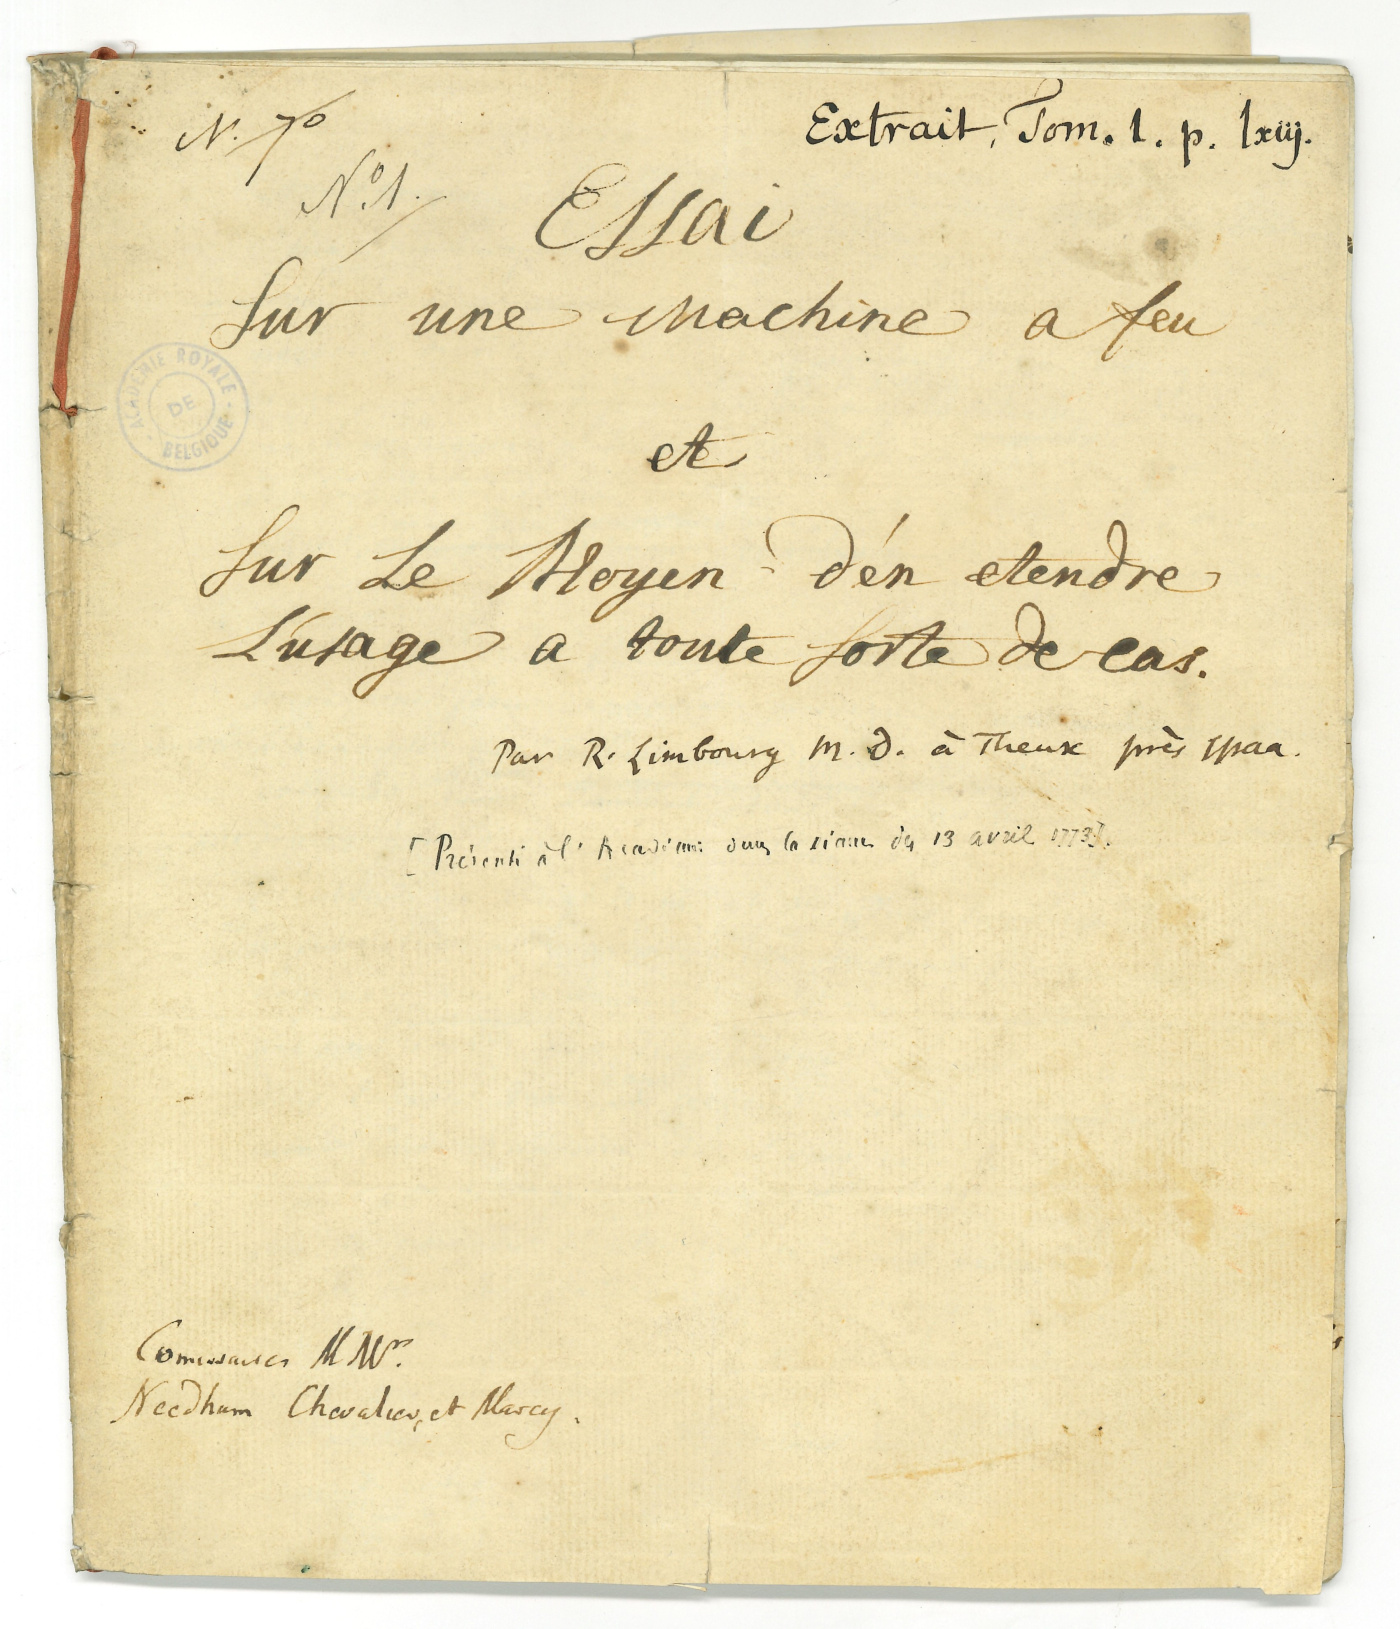 N. 70
Extrait, Tom. 1. p. lxiij.
N.º 1.
Essai
Sur une Machine a feu
ACADEMIE ROYALE DE BELGIQUE
et
Sur Le Moyen d'én etendre
L'usage a toute sorte de cas.
Par R. Limbourg M. D. à Theux près Spaa.
[Présenté à l'Académie dans la séance du 13 avril 1773].
Comissaires MMrs.
Needham Chevalier, et Marcy.